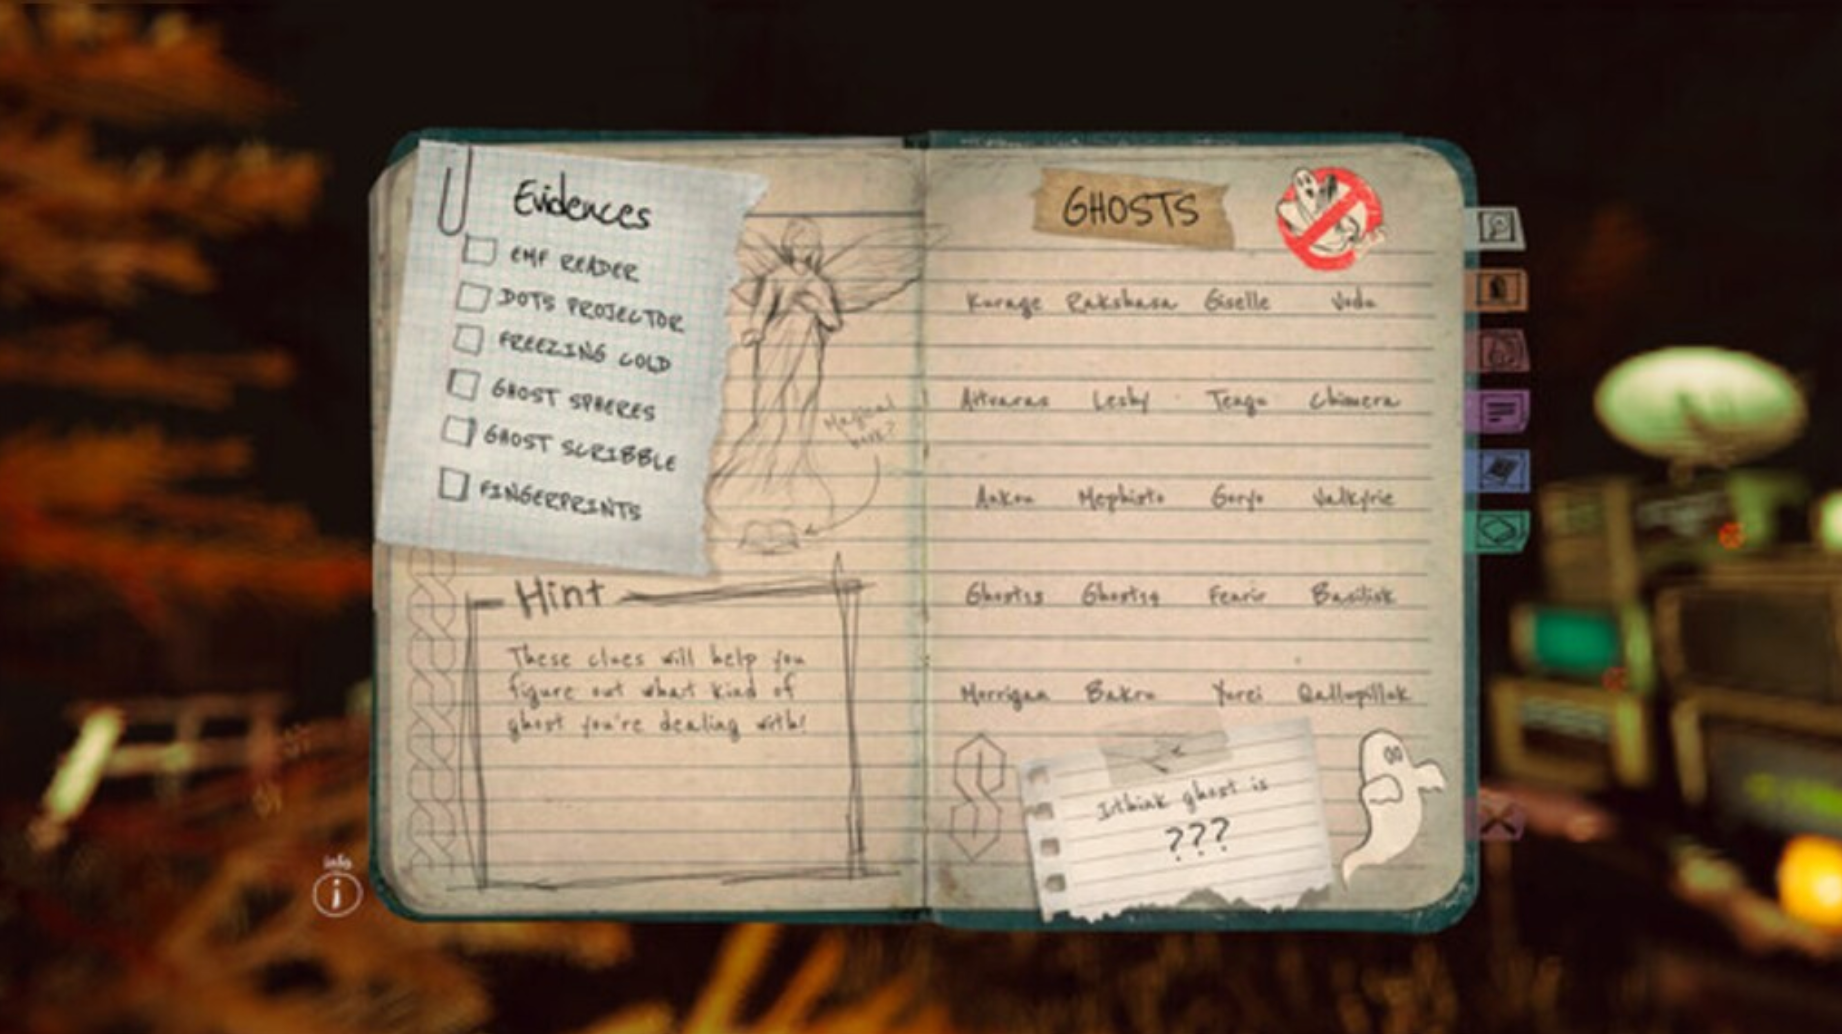 Evidences
EMF READER
DOTS PROJECTOR
FREEZING COLD
GHOST SPHERES
GHOST SCRIBBLE
FINGERPRINTS
Magical
Hint
These clues will help you
figure out what kind of
ghost you're dealing with!
info
GHOSTS
Kurage Rakshasa Giselle
Aitvaras Leshy Chimera
Ankou Mephisto Goryo Valkyrie
Ghost13 Ghost14 Fenrir Basilisk
Morrigan Bakru Yurei Qallupilluk
I think ghost is
???